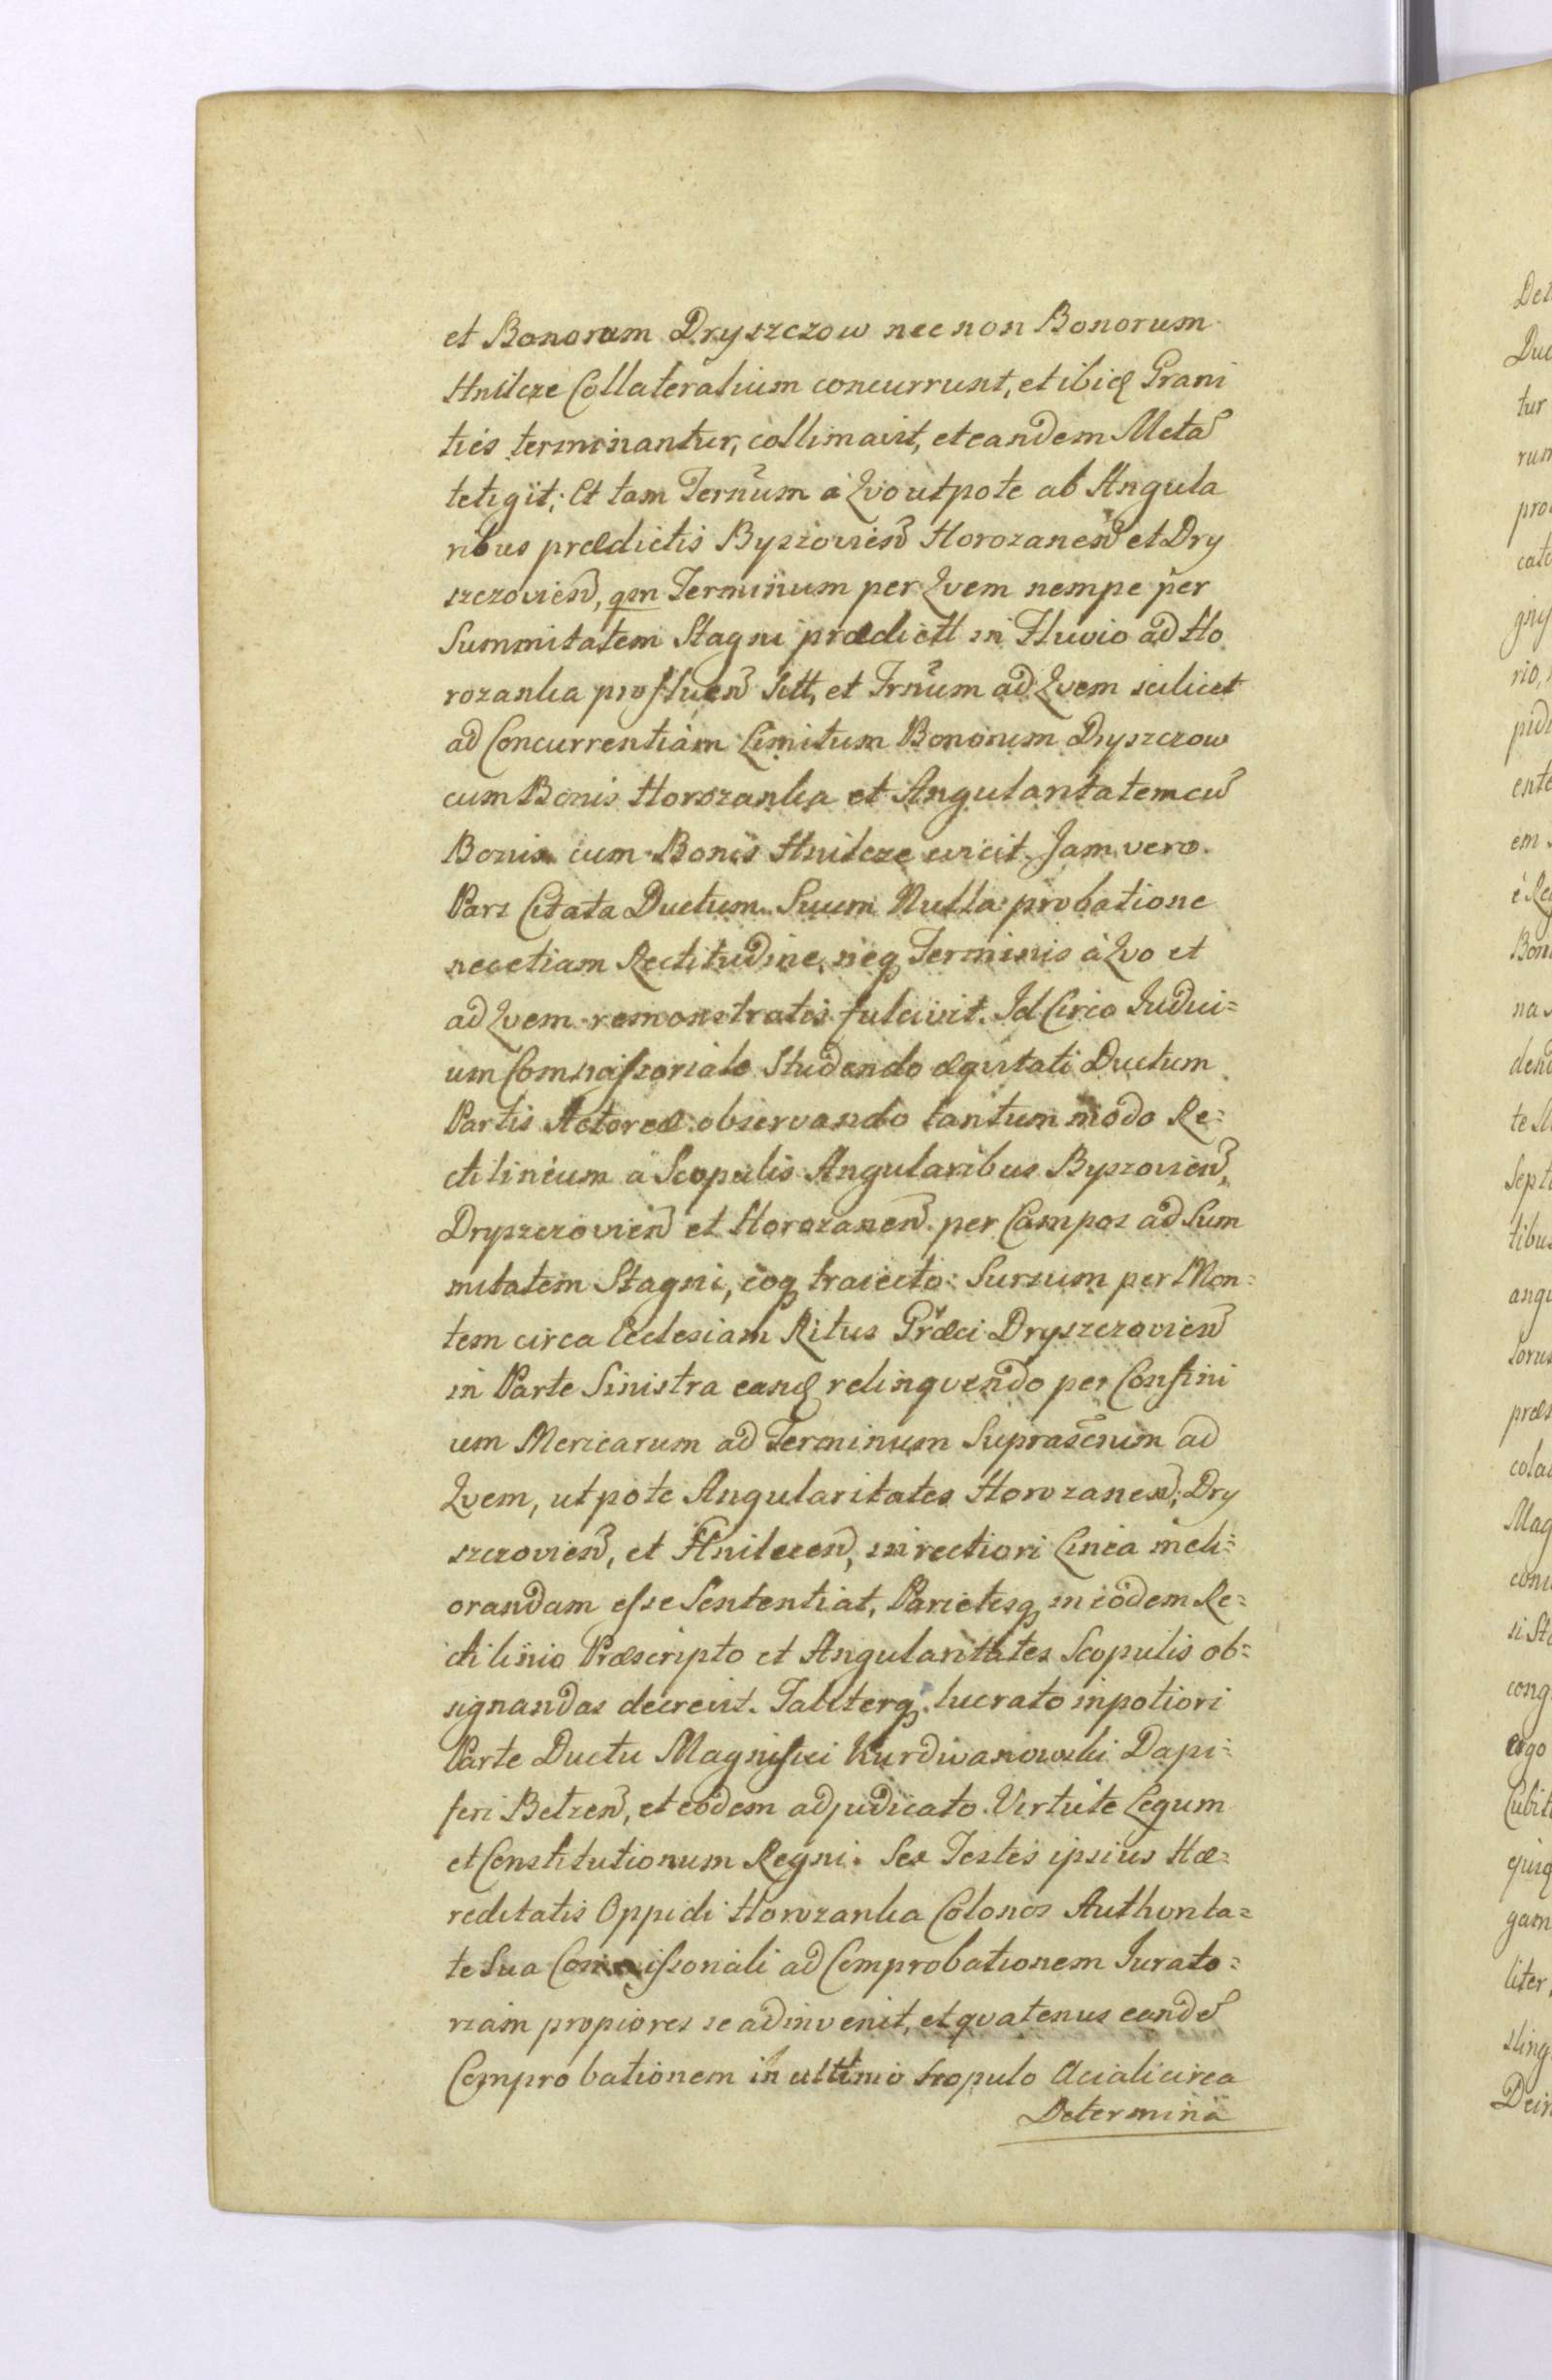 et Bonorum Dryszczow nec non Bonorum
Hnilcze Collateralium concurrunt, et ibiq Grani
ties terminantur, collimavit, et eandem Meta
tetigit; Et tam Ternum a Qvo utpote ab Angula
ribus prædictis Byszovien Horozanen et Dry
szczovien, qm Terminum per Qvem nempe per
Summitatem Stagni prædicti in Fluvio ad Ho
rozanka profluen Siti, et Trnum ad Qvem scilicet
ad Concurrentiam Limitum Bonorum Dryszczow
cum Bonis Horozanka et Angularitatem cu
Bonis cum Bonis Hnilcze evicit. Jam vero
Pars Citata Ductum Suum Nulla probatione
nec etiam Rectitudine, neq Terminis a Qvo et
ad Qvem remonstratis fulcivit. Id Circo Judici=
um Commissoriale Studendo æqvitati Ductum
Partis Actoreæ observando tantum modo Re=
ctilineum a Scopulis Angularibus Byszovien,
Dryszczovien et Horozanen per Campos ad Sum
mitatem Stagni, eoq traiecto Sursum per Mon=
tem circa Ecclesiam Ritus Græci Dryszczovien
in Parte Sinistra eanq relinqvendo per Confini
um Mericarum ad Terminum Suprascnum ad
Qvem, utpote Angularitates Horozanen, Dry
szczovien, et Hnilecen, in rectiori Linea meli=
orandam esse Sententiat, Parietesq in eodem Re=
ctilinio Præscripto et Angularitates Scopulis ob=
signandas decrevit. Taliterq lucrato in potiori
Parte Ductu Magnifici Kurdwanowski Dapi=
feri Betzen, et eodem adjudicato. Virtute Legum
et Constitutionum Regni. Sex Testes ipsius Hæ=
reditatis Oppidi Horozanka Colonos Authorita=
te Sua Commissoriali ad Comprobationem Iurato=
riam propiores se adinvenit, et qvatenus eande
Comprobationem in ultimo Scopulo Aciali circa
Determina